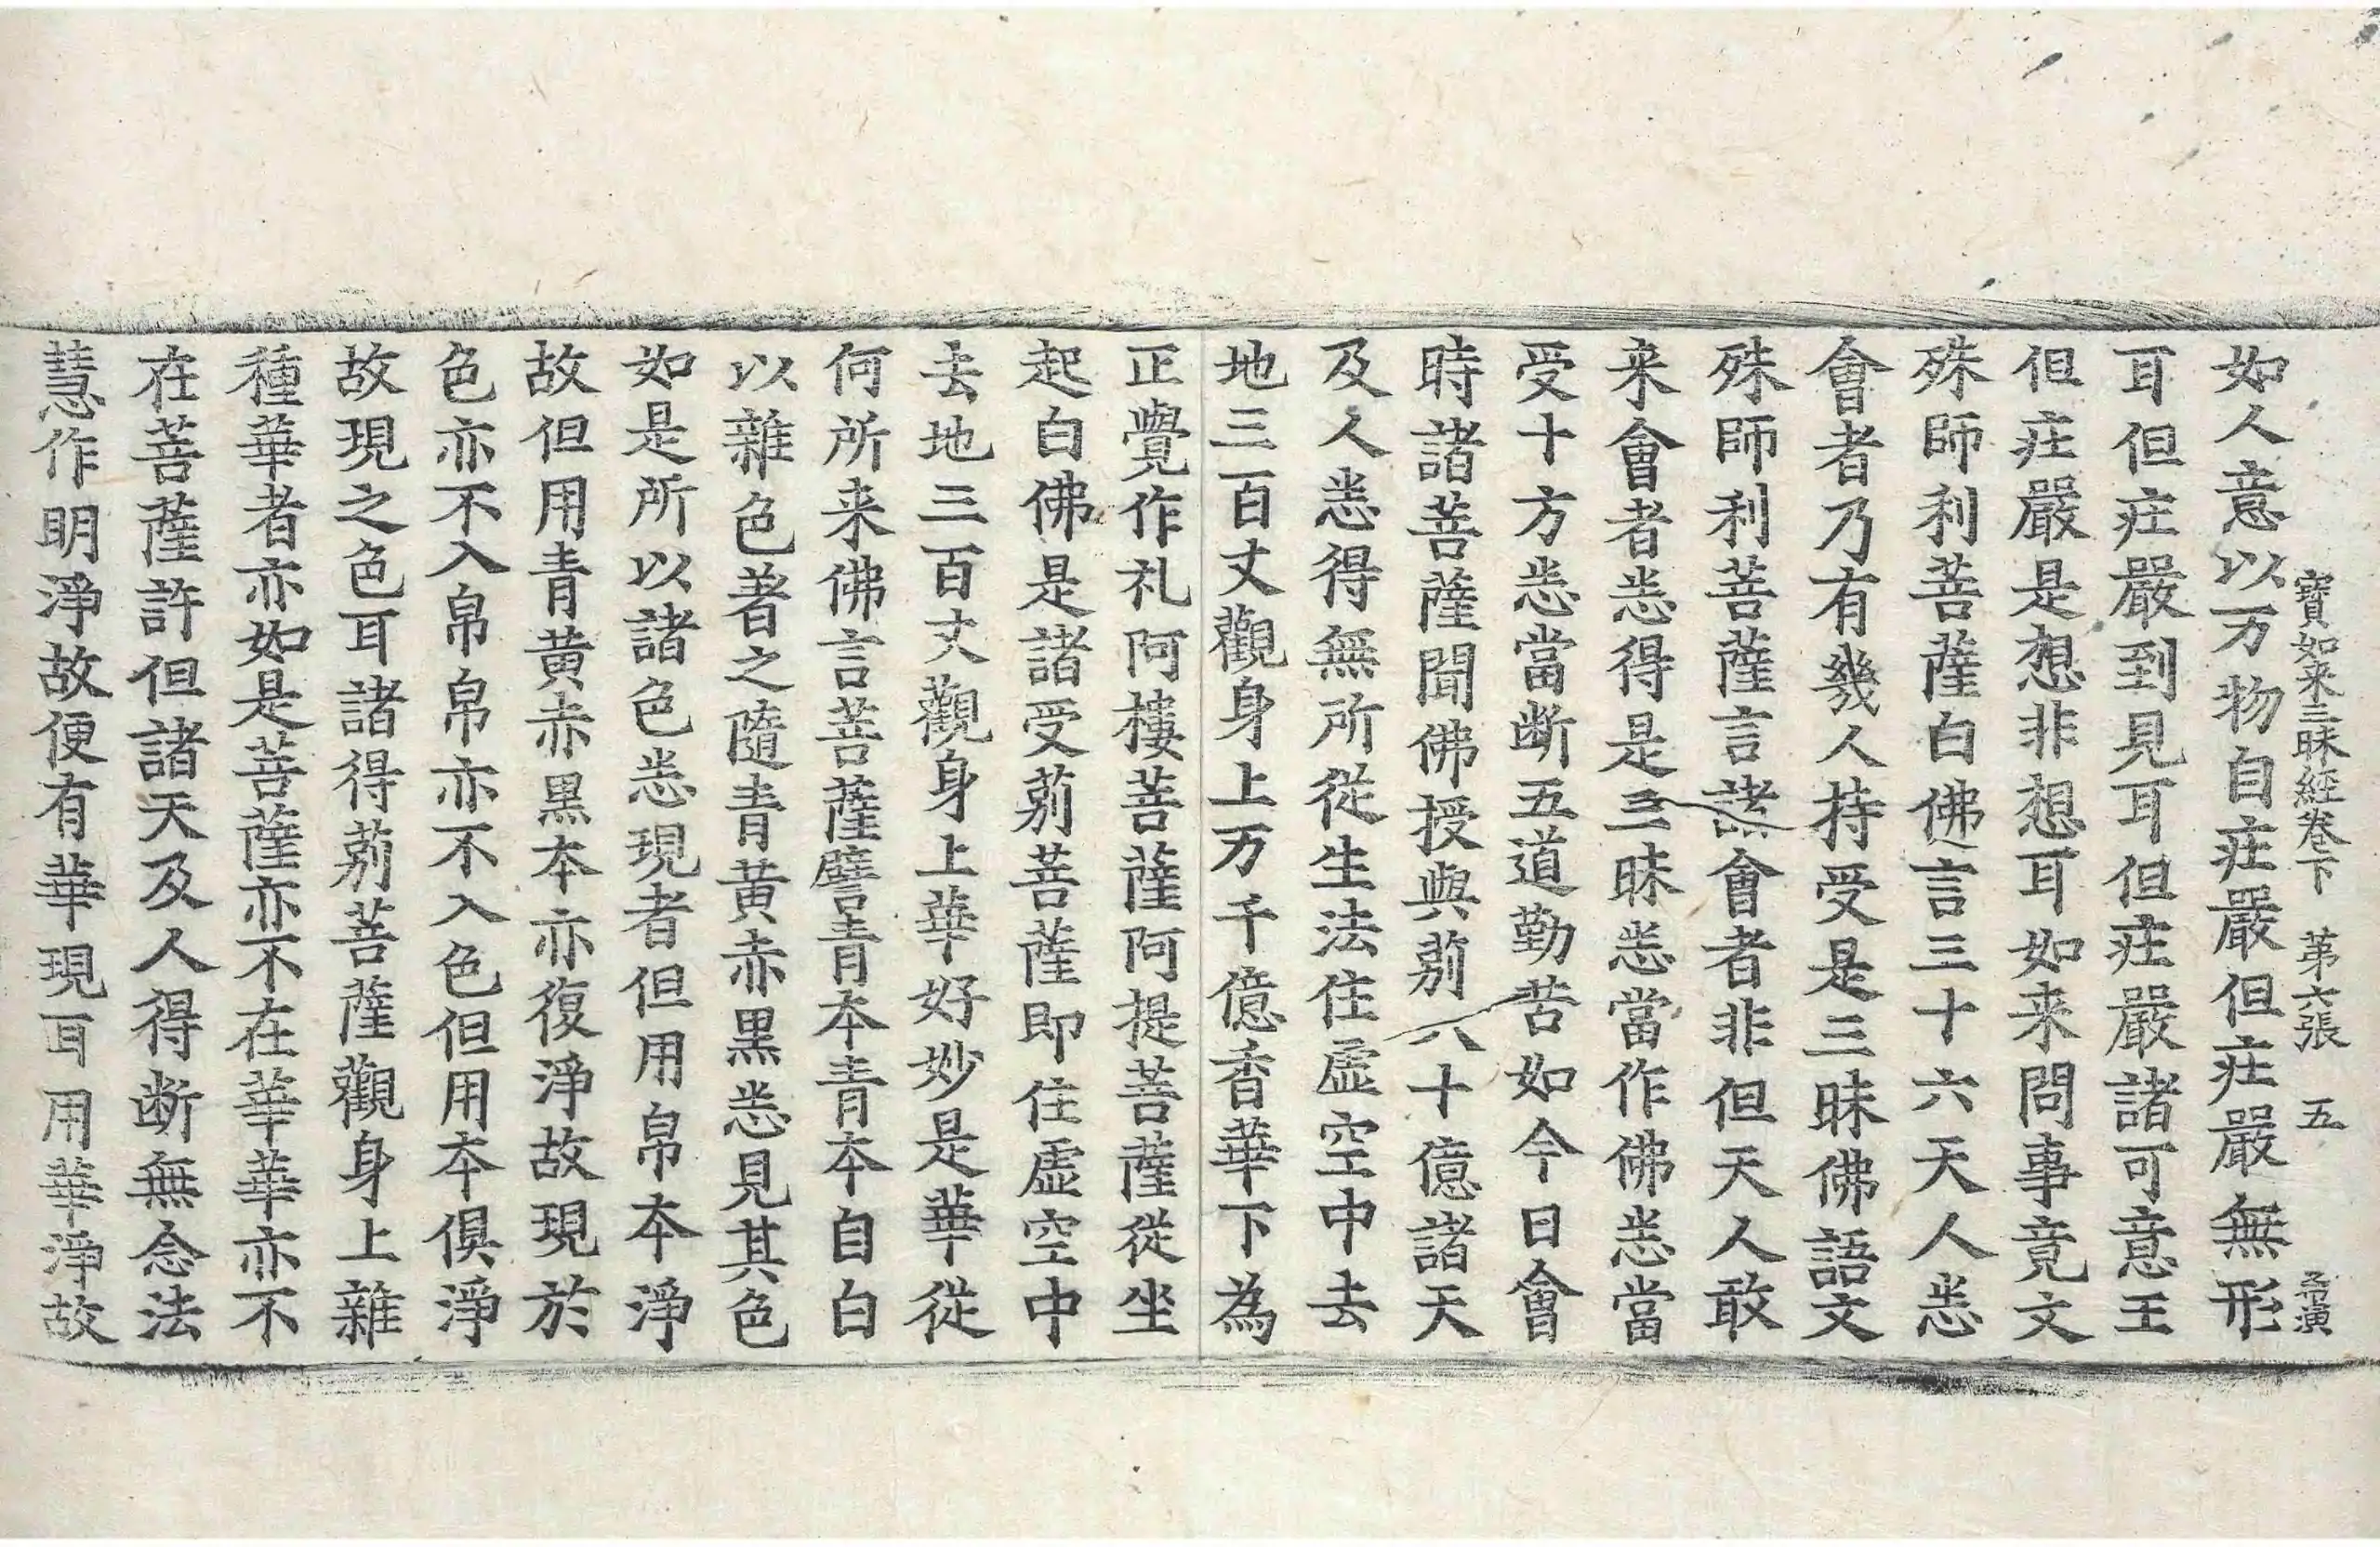 寶如来三昧經卷下 第六張 五
如人意以万物自庄嚴但庄嚴無形
耳但庄嚴到見耳但庄嚴諸可意王
但庄嚴是想非想耳如来問事竟文
殊師利菩薩白佛言三十六天人悉
會者乃有幾人持受是三昧佛語文
殊師利菩薩言諸會者非但天人敢
来會者悉得是三昧悉當作佛悉當
受十方悉當断五道勤苦如今日會
時諸菩薩聞佛授與莂八十億諸天
及人悉得無所從生法住虛空中去
地三百丈觀身上万千億香華下為
正覺作礼阿樓菩薩阿提菩薩從坐
起白佛是諸受莂菩薩即住虛空中
去地三百丈觀身上華好妙是華從
何所来佛言菩薩譬青本青本自白
以雜色著之隨青黃赤黑悉見其色
如是所以諸色悉現者但用帛本淨
故但用青黄赤黑本亦復淨故現於
色亦不入帛帛亦不入色但用本俱淨
故現之色耳諸得莂菩薩觀身上雜
種華者亦如是菩薩亦不在華華亦不
在菩薩許但諸天及人得断無念法
慧作明淨故便有華現耳用華淨故